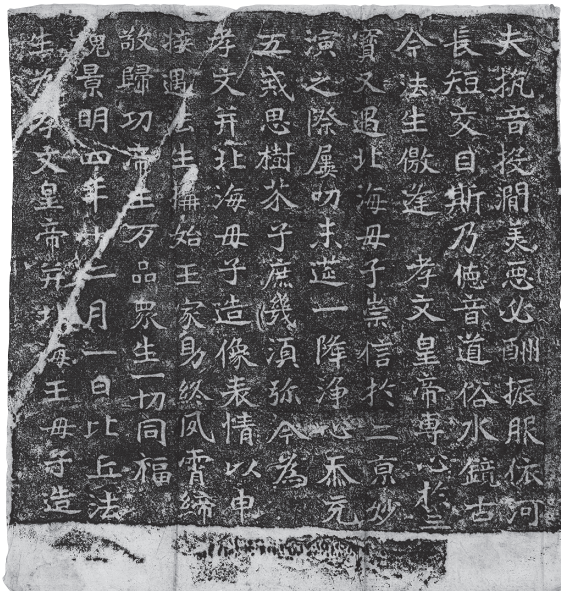 夫抗音投澗美惡必酬振服依河
長短交目斯乃德音道俗水鏡古
今法生儌逢孝文皇帝專心於三
寶又遇北海母子崇信於二京妙
演之際屢叨末筵一降淨心忝充
五戒思樹芥子庶幾須弥今為
孝文并北海母子造像表情以申
接遇法生構始王家助終夙霄締
敬歸功帝王万品眾生一切同福
魏景明四年十二月一日比丘法
生為孝文皇帝并北海王母子造